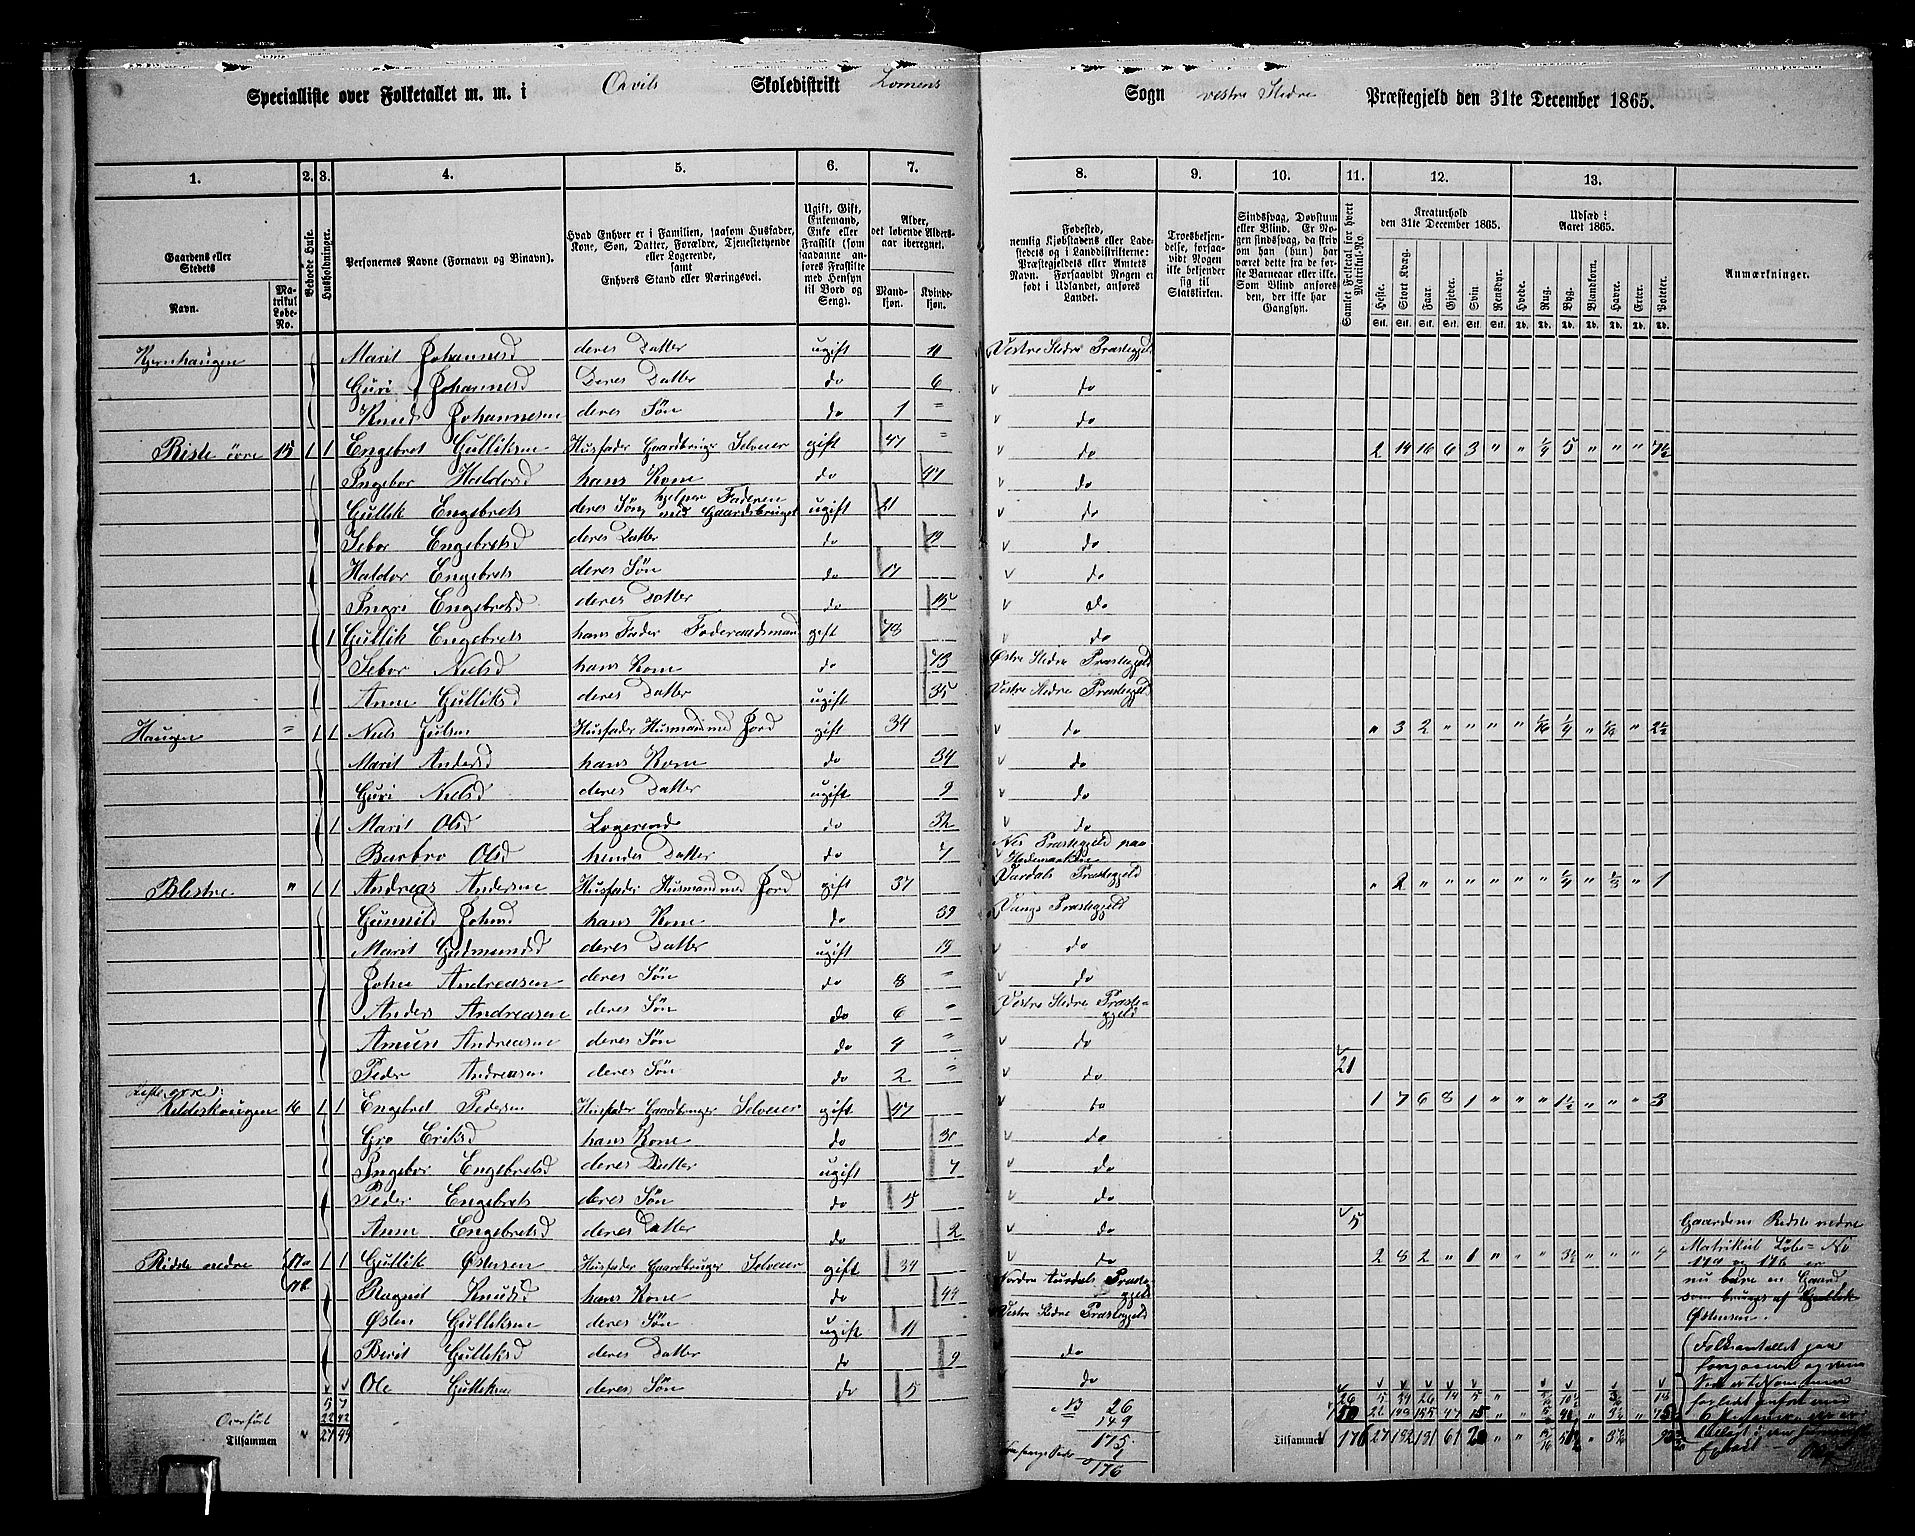 Specialliste over Folketallet m. m. i Qvils Skoledistrikt Lomens Sogn vestre Slidre Præstegjeld den 31te December 1865.
1. 2. 3. 4. 5. 6. 7. 8. 9. 10. 11. 12. 13.
Gaardens eller Stedets
Navn.
Matrikul Løbe-No.
Beboede Huse.
Husholdninger.
Personernes Navne (Fornavn og Binavn).
Hvad Enhver er i Familien, saasom Husfader, Kone, Søn, Datter, Forældre, Tjenestetyende eller Logerende, samt Enhvers Stand eller Næringsvei.
Ugift, Gift, Enkemand, Enke eller Fraskilt (som saadanne anføres Fraskilte med Hensyn til Bord og Seng).
Alder, det løbende Aldersaar iberegnet.
Mandkjøn.
Kvindekjøn.
Fødested, nemlig Kjøbstadens eller Ladestedets og i Landdistrikterne: Præstegjeldets eller Amtets Navn. Forsaavidt Nogen er født i Udlandet, anføres Landet.
Troesbekjendelse, forsaavidt Nogen ikke bekjender sig til Statskirken.
Sindssvag, Døvstum eller Blind. Er Nogen sindssvag, da skrives om han (hun) har været dette fra de første Barneaar eller ikke. Som Blind ansøres den, der ikke har Gangsyn.
Samlet Folketal for hvert Matrikul-No.
Kreaturhold den 31te December 1865.
Heste. Stort Kvæg. Faar. Gjeder. Svin. Rensdyr.
Udsæd i Aaret 1865.
Hvede. Rug. Byg. Blandkorn. Havre. Erter. Poteter.
Anmærkninger.
Kjernhaugen Marit Johannesd deres Datter ugift 11 Vestre Slidre Præstegjeld
Guri Johannesd Deres Datter do 6 do
Knud Johannesen deres Søn do 1 " do
Riste övre 15 1 1 Engebret Gulliksen Husfader Gaardbruger Selveier gift 47 " do 2 14 16 6 3 " " 1/4 5 " " " 7 1/2
Ingebor Haldorsd hans Kone do 47 do
Gullik Engebrets deres Søn hjelper Faderen med Gaardsbruget ugift 21 do
Sebor Engebretsd deres Datter do 19 do
Haldor Engebrets deres Søn do 17 do
Ingri Engebretsd deres Datter do 15 do
Gullik Engebrets hans Fader Föderaadsmand gift 78 do
Sebor Nielsd hans Kone do 73 Østre Slidre Præstegjeld
Anne Gulliksd deres Datter ugift 35 Vestre Slidre Præstegjeld
Haugen " 1 1 Niels Julsen Husfader Husmand med Jord gift 34 do " 3 2 " " " " 1/16 1/4 " 1/4 " 2 1/2
Marit Andersd hans Kone do 34 do
Guri Nielsd deres Datter ugift 9 do
1 Marit Olsd Logerende do 32 do
Barbro Olsd hendes Datter do 7 Nes Præstegjeld paa Hedemarken
Blestre " 1 1 Andreas Andersen Husfader Husmand med Jord gift 37 Vardals Præstegjeld " 2 " " " " " " 1/4 " 1/3 " 1
Gunnild Johnsd hans Kone do 39 Vangs Præstegjeld
Marit Gudmundsd deres Datter ugift 13 do
John Andreasen deres Søn do 8 " do
Anders Andreasen deres Søn do 6 " Vestre Slidre Præstegjeld
Amun Andreasen deres Søn do 4 " do
Peder Andreasen deres Søn do 2 " do 21
Kildeshaugen 16 1 1 Engebret Pedersen Husfader Gaardbruger Selveier gift 47 do 1 7 6 8 1 " " " 1 1/2 " " " 3
Gro Eriksd hans Kone do 30 do
Ingebor Engebretsd deres Datter ugift 7 do
Peder Engebrets deres Søn do 5 do
Anne Engebretsd deres Datter do 2 do 5
Ridste nedre 17a 17b 1 1 Gullik Østensen Husfader Gaardbruger Selveier gift 34 do 2 8 2 " 1 " " " 3 1/2 " " " 4
Ragnil Knudsd hans Kone do 44 Nordre Aurdals Præstegjeld
Østen Gulliksen deres Søn ugift 11 Vestre Slidre Præstegjeld
Berit Gulliksd deres Datter do 9 do
Ole Gulliksen deres Søn do 5 do
Gaardene Ridste nedre
Matrikul Løbe-No
17a og 17b er
nu bare en Gaard
som bruges af Gullik
Østensen.
5 7
Overført 22 42
Tilsammen 27 49
NB 26
149
175
176
26 5 34 26 14
150 22
Tilsammen 176 27 182 181 61 20